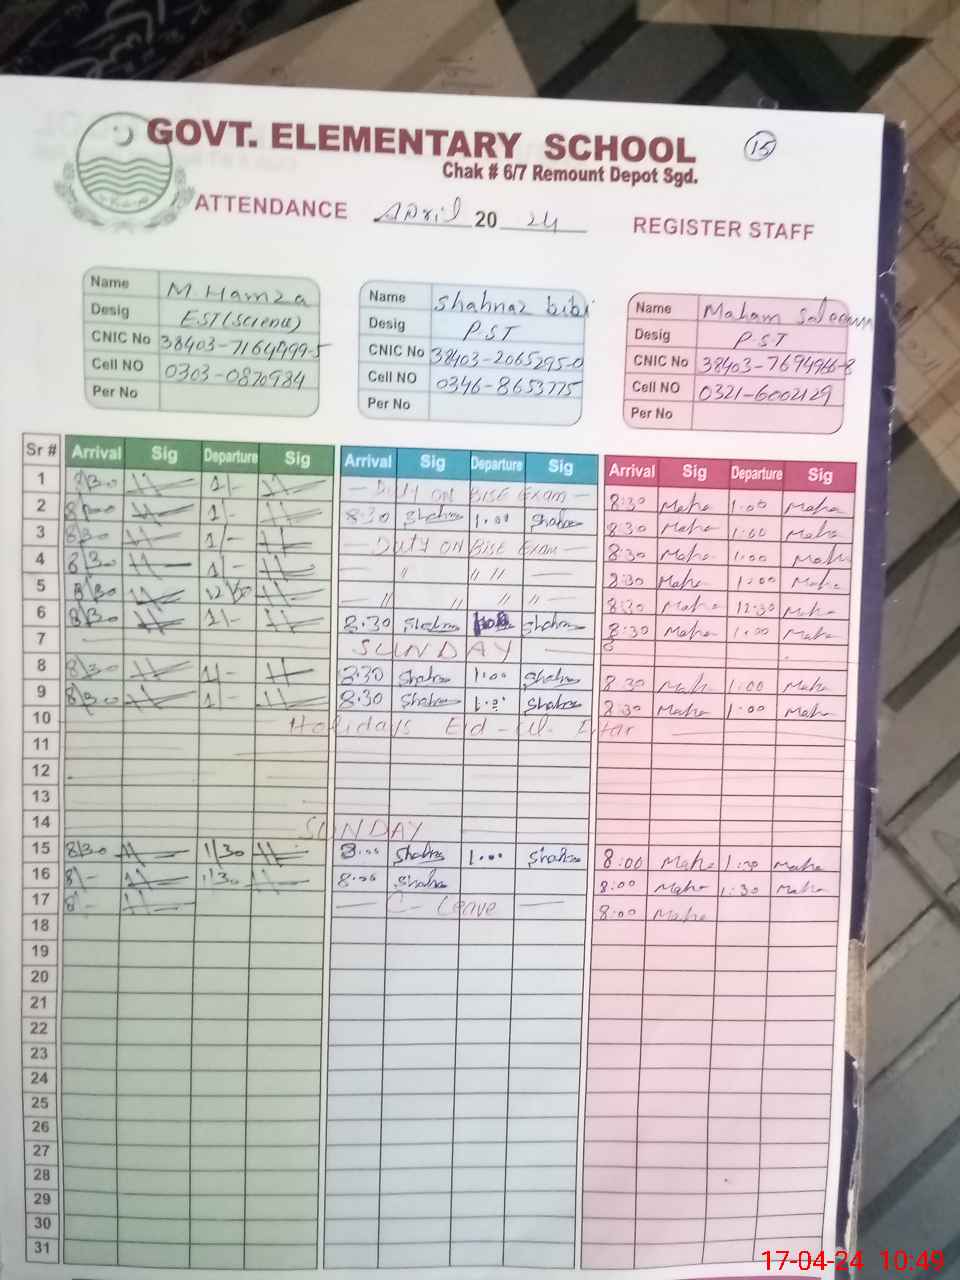 GOVT. ELEMENTARY SCHOOL
15
Chak # 6/7 Remount Depot Sgd.
ATTENDANCE April 20 24 REGISTER STAFF
Name M. Hamza
Desig EST (Science)
CNIC No 38403-7164999-5
Cell NO 0303-0870984
Per No
Name Shahnaz bibi
Desig P.S.T
CNIC No 38403-2065295-0
Cell NO 0346-8653775
Per No
Name Maham Saleem
Desig P.S.T
CNIC No 38403-7694966-8
Cell NO 0321-6002129
Per No
Sr # Arrival Sig Departure Sig Arrival Sig Departure Sig Arrival Sig Departure Sig
1 8/30 1/- — Duty on BISE Exam — 8:30 Maha 1:00 Maha
2 1/- 8:30 Shahnaz 1:00 Shahnaz 8:30 Maha 1:00 Maha
3 8/30 1/- — Duty on BISE Exam — 8:30 Maha 1:00 Maha
4 8/30 1/- — " " " — 8:30 Maha 1:00 Maha
5 8/30 12/30 — " " " " — 8:30 Maha 12:30 Maha
6 8/30 1/- 8:30 Shahnaz Shahnaz 8:30 Maha 1:00 Maha
7 SUNDAY
8 8/30 1/- 8:30 Shahnaz 1:00 Shahnaz 8:30 Maha 1:00 Maha
9 8/30 1/- 8:30 Shahnaz Shahnaz 8:30 Maha 1:00 Maha
10 Holidays Eid-Ul-Fitar
11
12
13
14 SUNDAY
15 8/30 1/30 8:00 Shahnaz 1:00 Shahnaz 8:00 Maha 1:30 Maha
16 8/- 1/30 8:00 Shahnaz 8:00 Maha 1:30 Maha
17 8/- — C- Leave — 8:00 Maha
18
19
20
21
22
23
24
25
26
27
28
29
30
31
17-04-24 10:49